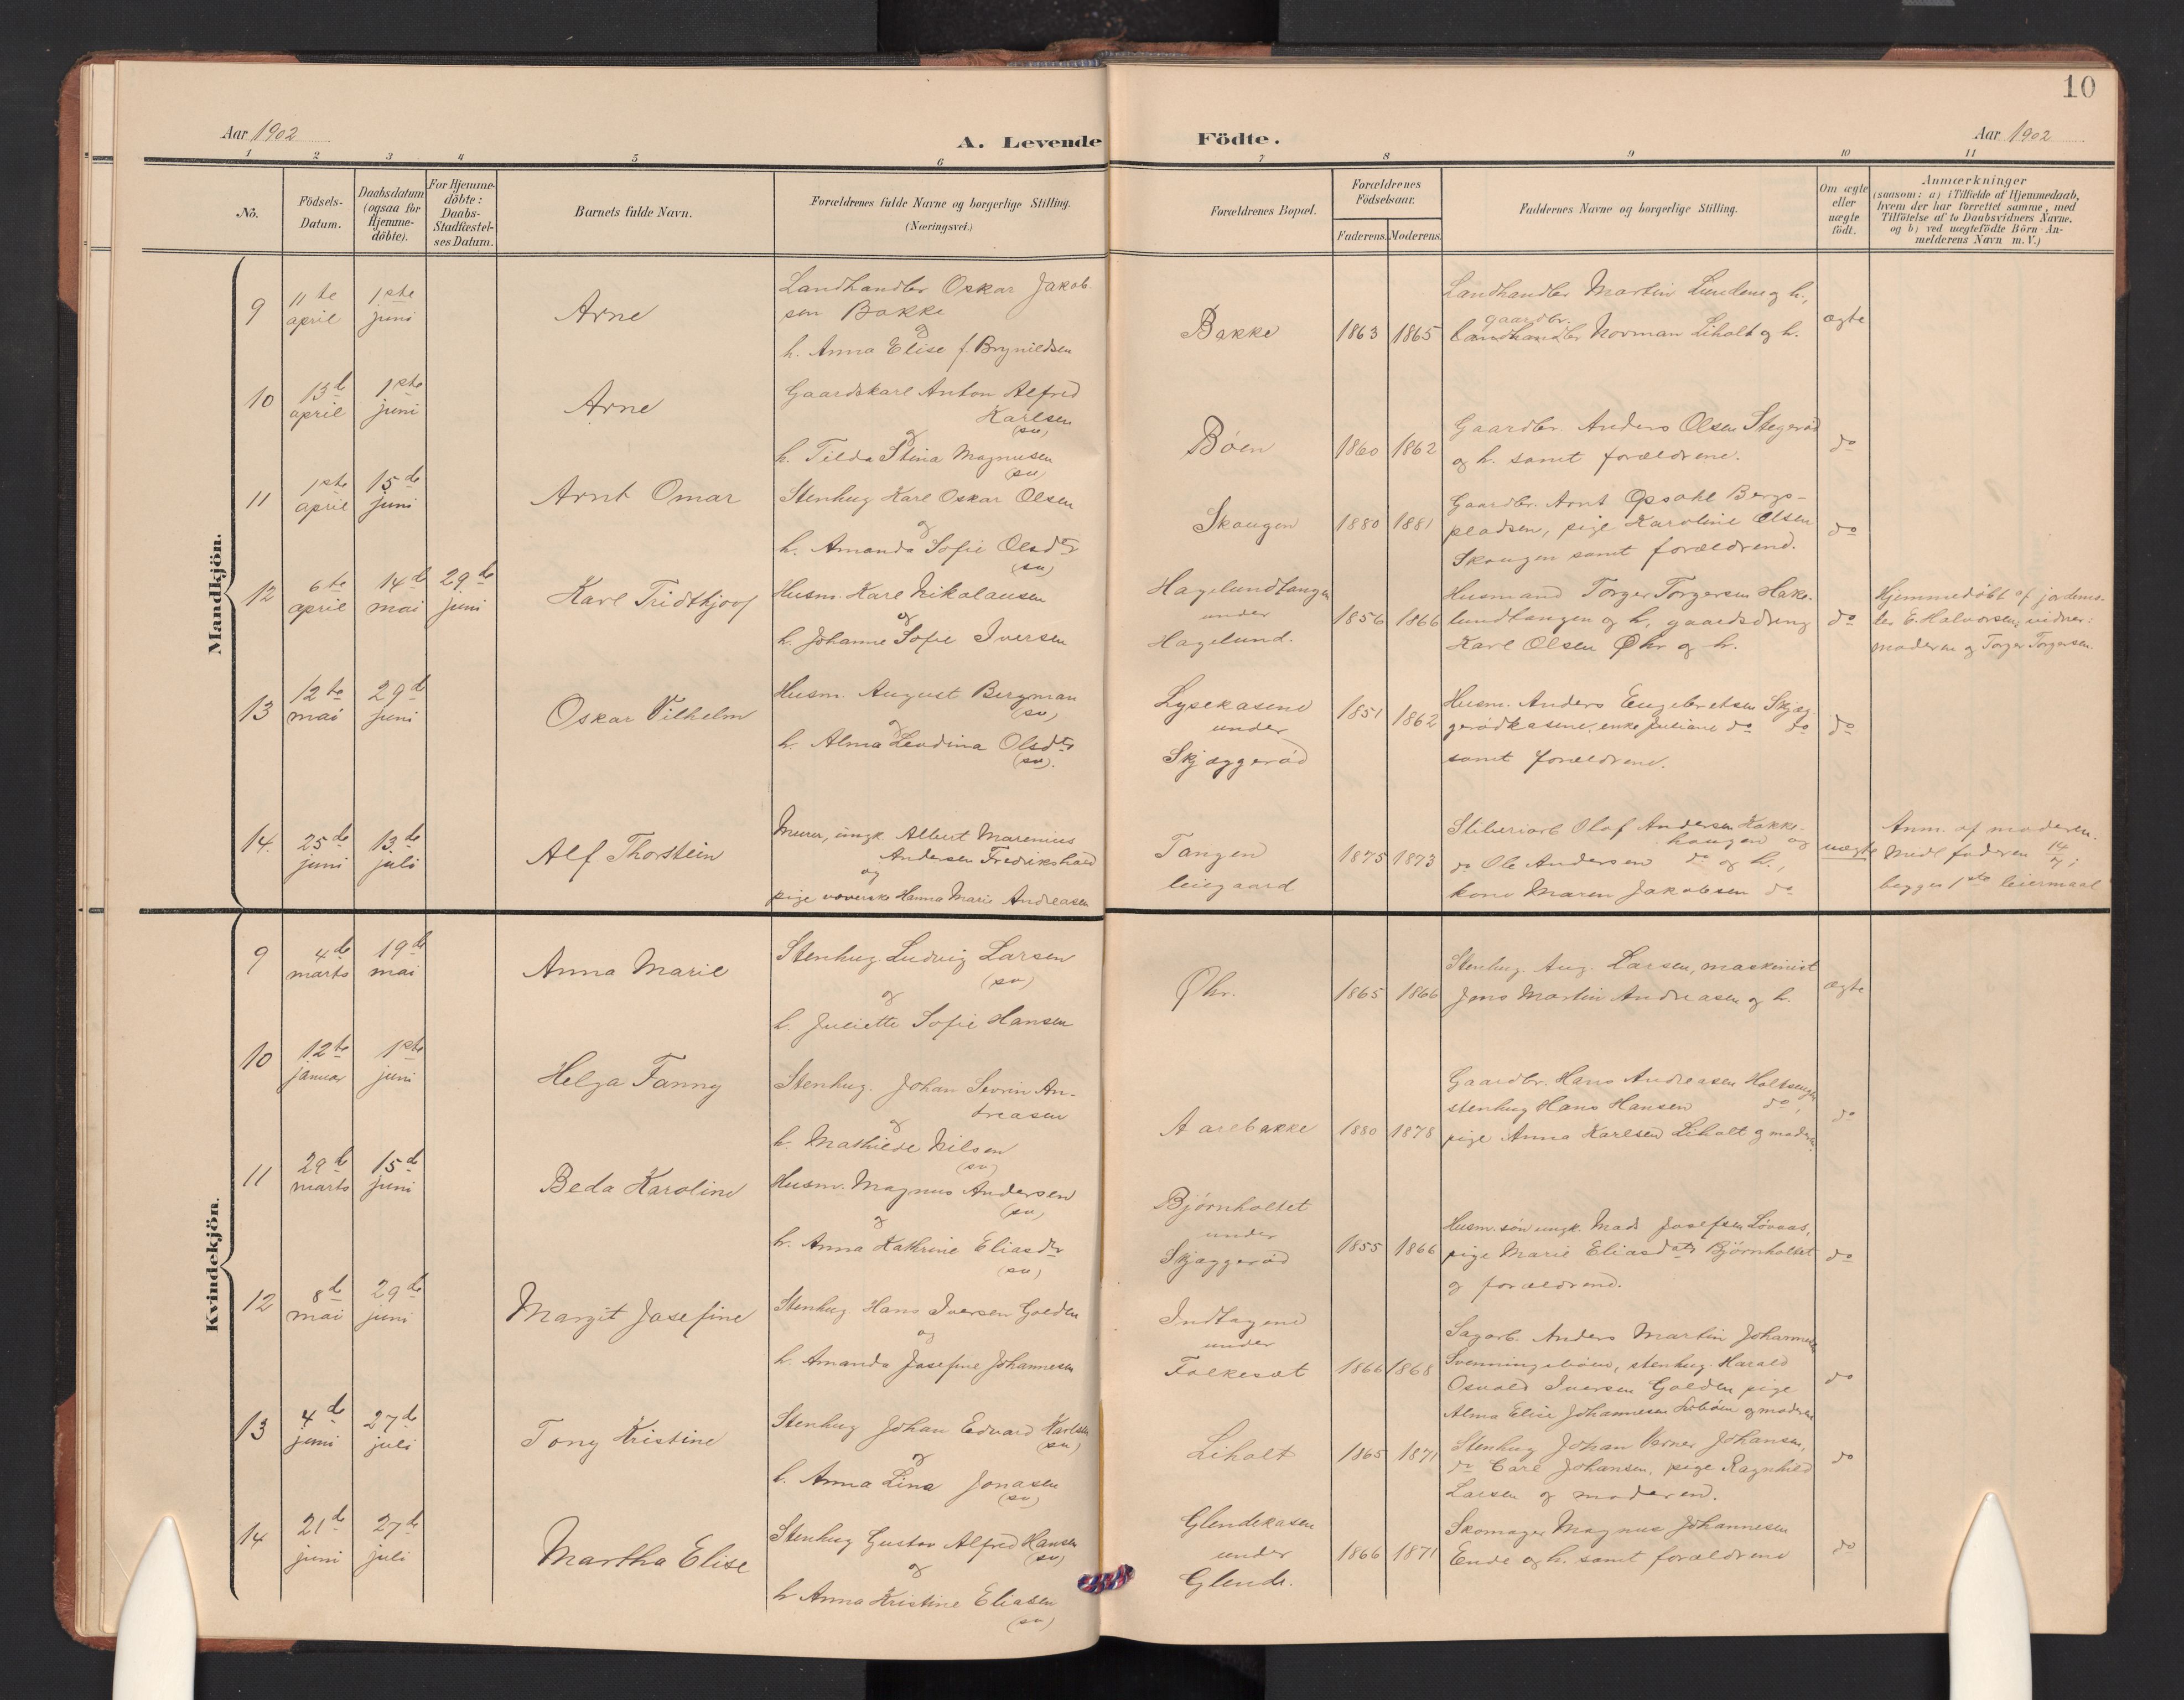 10
Aar 1902
A. Levende Födte.
Aar 1902
1 2 3 4 5 6 7 8 9 10 11
No.
Födsels-Datum.
Daabsdatum (ogsaa for Hjemme-döbte).
For Hjemme-döbte: Daabs-Stadfæstel-ses Datum.
Barnets fulde Navn.
Forældrenes fulde Navne og borgerlige Stilling.
(Næringsvei.)
Forældrenes Bopæl.
Forældrenes Födselsaar.
Faderens. Moderens.
Faddernes Navne og borgerlige Stilling.
Om ægte eller uægte födt.
Anmærkninger
(saasom: a) i Tilfælde af Hjemmedaab,
hvem der har forrettet samme, med
Tilföielse af to Daabsvidners Navne.
og b) ved uægtefödte Börn An-
melderens Navn m. V.)
Mandkjön.
9 11te april 1ste juni
Arne
Landhandler Oskar Jakob-
sen Bakke
og
h. Anna Elise f. Brynildsen
Bakke 1863 1865
Landhandler Martin Lunden og h.,
gaardbr.
Landhandler Norman Liholt og h.
ægte
10 13de april 1ste juni
Arne
Gaardskarl Anton Alfred
Karlsen
(sv)
og
h. Tilda Stina Magnusen
(sv)
Böen 1860 1862
Gaardbr. Anders Olsen Stegeröd
og h. samt forældrene.
do
11 1ste april 15de juni
Arnt Omar
Stenhug Karl Oskar Olsen
og
h. Amanda Sofie Olsdtr
(sv)
Skougen 1880 1881
Gaardbr. Arnt Opsahl Bergs-
pladsen, pige Karoline Olsen
Skougen samt forældrene.
do
12 6te april 14de mai 29de juni
Karl Fridthjoof
Husm. Karl Nikolausen
og
h. Johanne Sofie Iversen
Hagelundtangen
under
Hagelund.
1856 1866
Husmand Torger Torgersen Hake-
lundtangen og h, gaardsdreng
Karl Olsen Øhr og h.
do
Hjemmedöbt af jordemo-
der E. Halvorsen, vidner:
moderen og Torger Torgersen.
13 12te mai 29de juni
Oskar Vilhelm
Husm. August Bergman
(sv)
og
h. Alma Leodina Olsdtr
(sv).
Lysekasene
under
Skjæggeröd
1851 1862
Husm. Anders Engebretsen Skjæg-
gerödkasene, enke Juliane do do
samt forældrene.
do
14. 25de juni 13de juli
Alf Thorstein
Murer, ungk. Albert Marenius
Andersen Fredrikshald
og
pige væverske Hanna Marie Andreasen
Tangen
leiegaard
1875 1873
Sliberiarb Olaf Andersen Kakke-
haugen og
do Ole Andersen do og h.,
kone Maren Jakobsen do
uægte
Anm. af moderen.
Medl faderen 14/7;
begges 1ste leiermaal
Kvindekjön.
9 4de marts 19de mai
Anna Marie
Stenhug. Ludvig Larsen
(sv)
og
h. Juliette Sofie Hansen
Øhr. 1865 1866
Stenhug. Aug. Larsen, maskinist
Jens Martin Andreasen og h.
ægte
10 12te januar 1ste juni
Helga Fanny
Stenhug. Johan Sevrin An-
dreasen
og
h. Mathilde Nilsen
(sv)
Aarebakke 1880 1878
Gaardbr. Hans Andreasen Holtsengen
stenhug Hans Hansen do,
pige Anna Karlsen Liholt og moderen
do
11 29de marts 15de juni
Beda Karoline
Husm. Magnus Andersen
(sv)
og
h. Anna Kathrine Eliasdtr
(sv)
Björnholtet
under
Skjæggeröd
1855 1866
Husm. sön ungk. Mads Josefsen Lövaas,
pige Marie Eliasdatr Björnholtet
og forældrene.
do
12 8de mai 29de juni
Margit Josefine
Stenhug Hans Iversen Golden
og
h. Amanda Josefine Johannesen
Indtagene
under
Folkesæt
1866 1868
Sagarb. Anders Martin Johannesen
Svenningsböen, stenhug. Harald
Osvald Iversen Golden pige
Alma Elise Johannesen og moderen
do
13 4de juni 27de juli
Tony Kristine
Stenhug Johan Edvard Karlsen
(sv)
og
h. Anna Lina Jonasen
(sv)
Liholt 1865 1871
Stenhug Johan Verner Johansen,
do Carl Johansen, pige Ragnhild
Larsen og moderen.
do
14 21de juni 27de juli
Martha Elise
Stenhug Gustav Alfred Hansen
(sv)
og
h Anna Kristine Eliasen
(sv)
Glendekasen
under
Glende.
1866 1871
Skomager Magnus Johannesen
Ende og h. samt forældrene
do